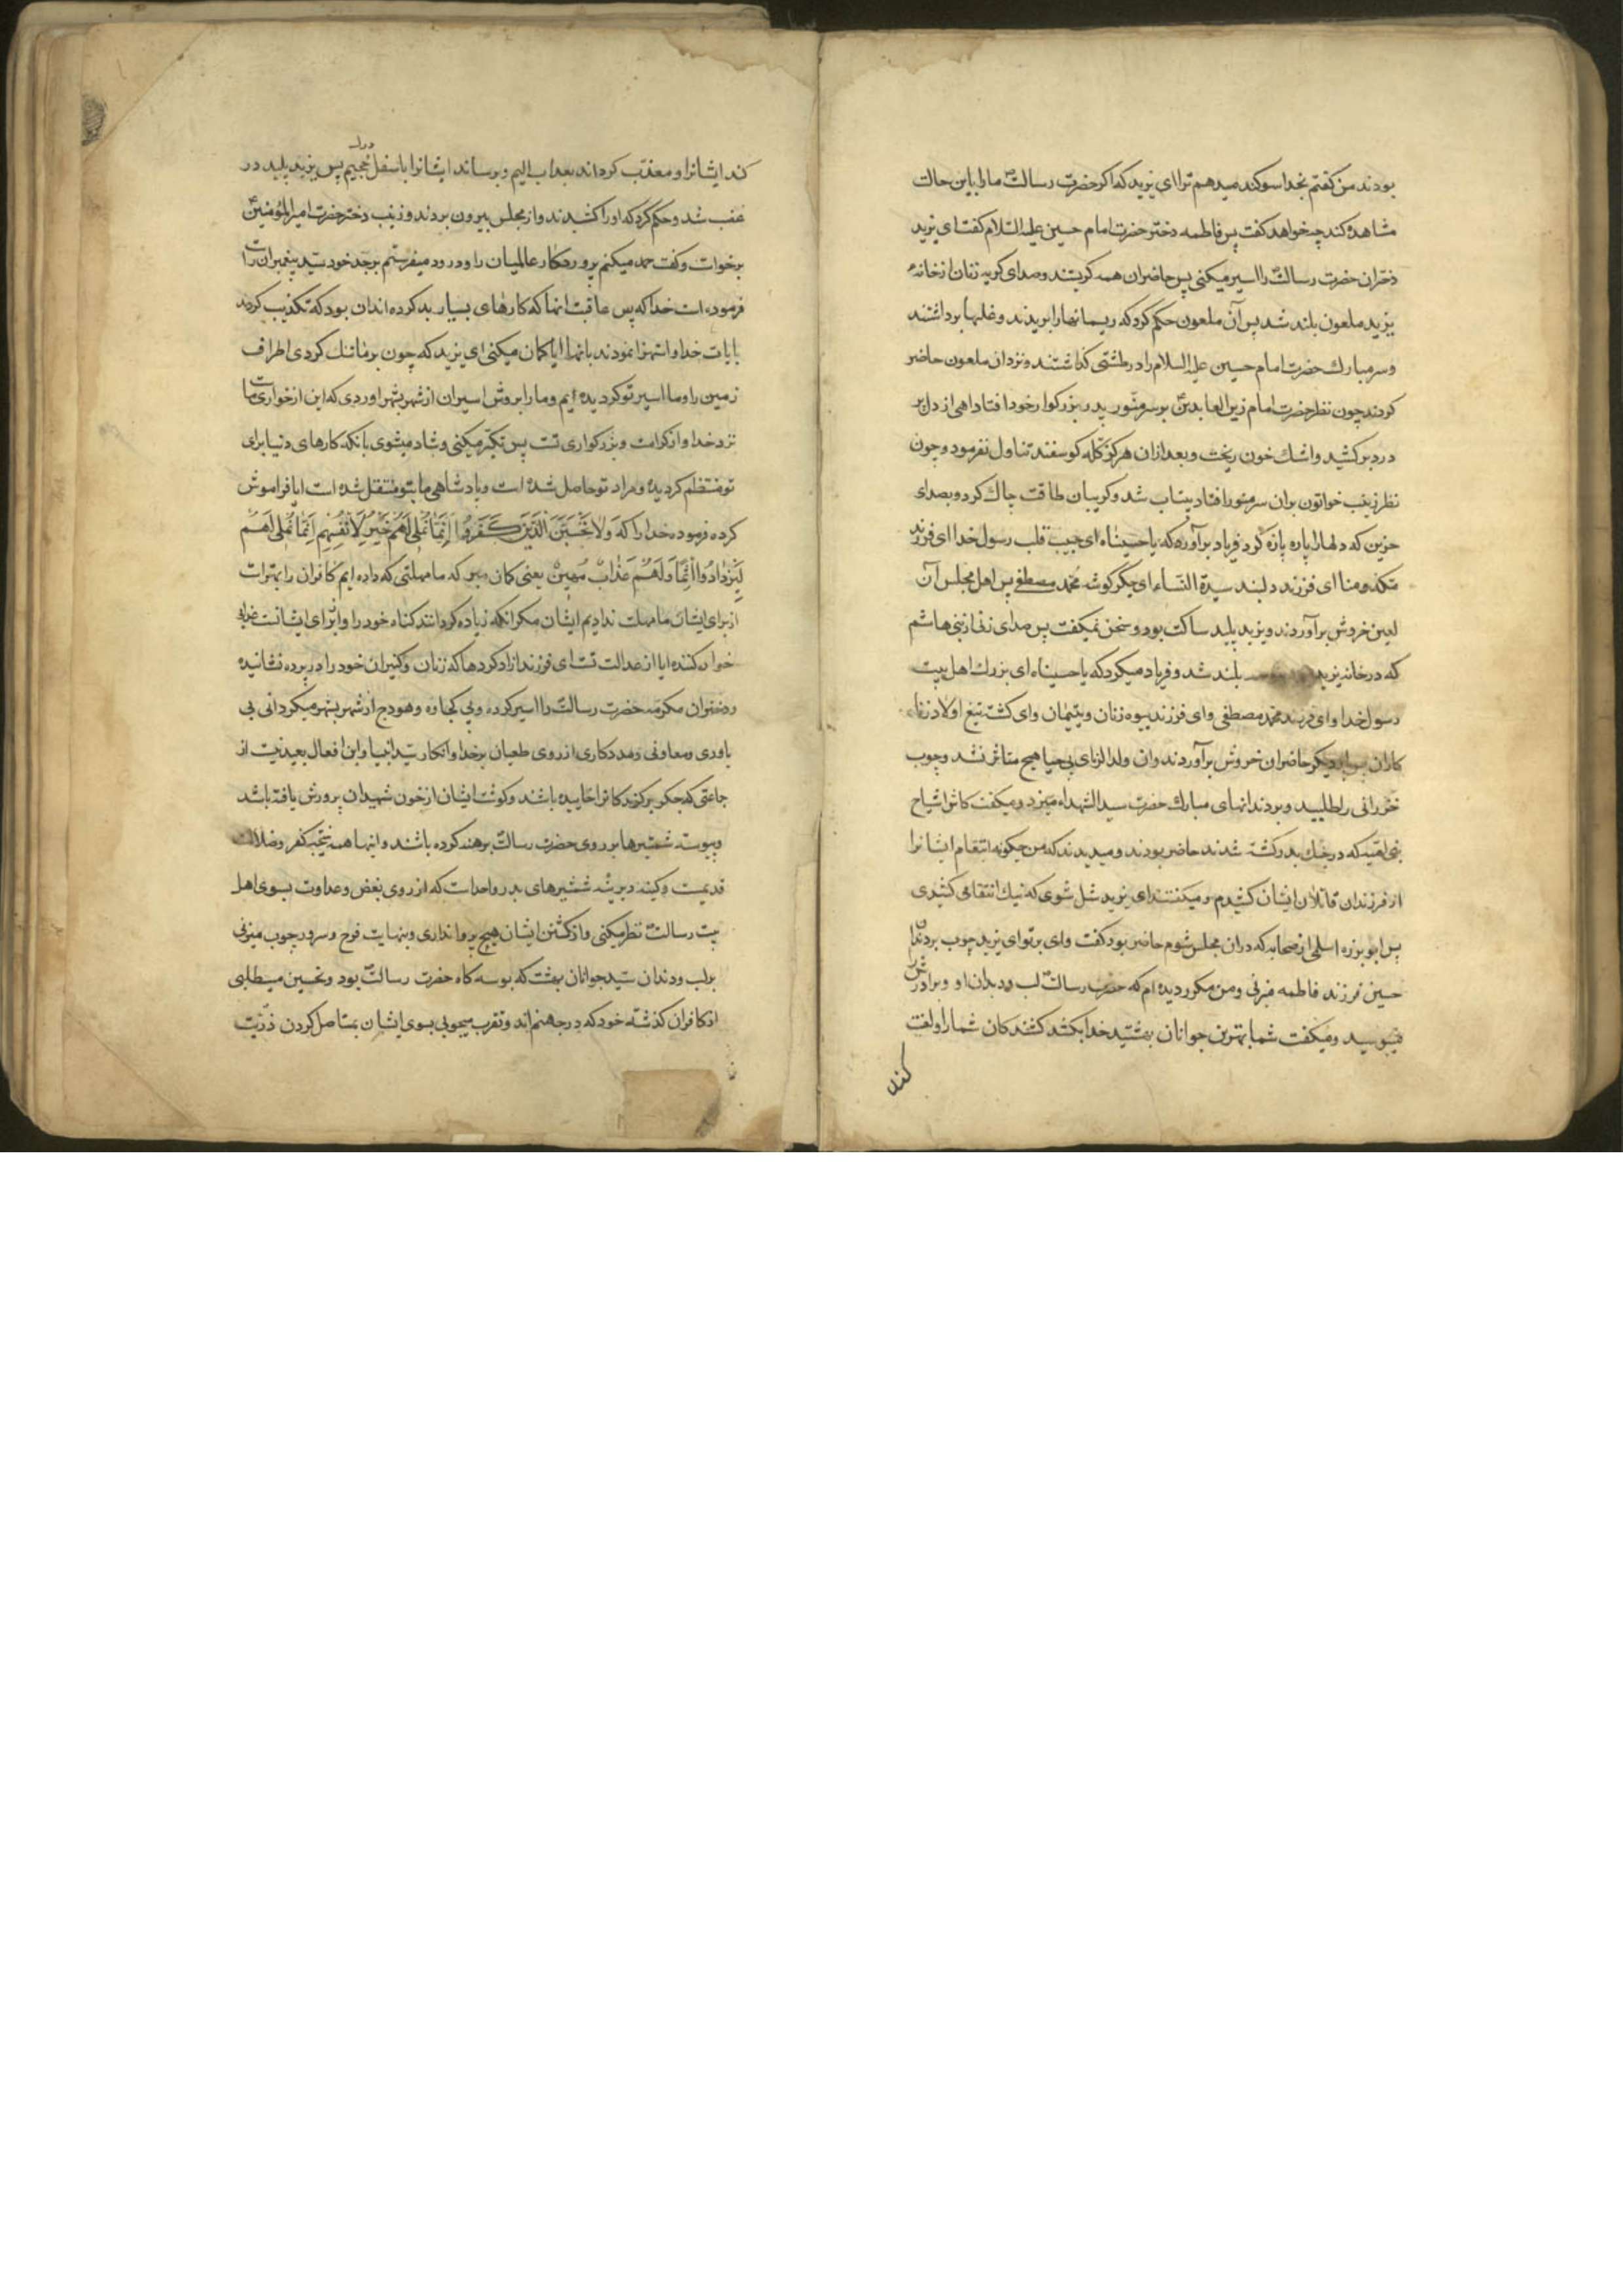 بودند من کفتم بخدا سوکند میدهم ترا ای یزید که اکر حضرت رسالت ما را باین حالت
مشاهده کند چه خواهد کفت پس فاطمه دختر حضرت امام حسین علیه السلام کفت ای یزید
دختران حضرت رسالت را اسیر میکنی پس حاضران همه کریستند و صدای کریه زنان از خانهٔ
یزید ملعون بلند شد پس آن ملعون حکم کرد که ریسمانها را بریدند و غلها برداشتند
و سر مبارک حضرت امام حسین علیه السلام را در طشتی کذاشتند و نزد ان ملعون حاضر
کردند چون نظر حضرت امام زین العابدین بر سر منور پدر بزرکوار خود افتاد اهی از دل پر
درد برکشید و اشک خون ریخت و بعد از ان هرکز کله کوسفند تناول نفرمود و چون
نظر زینب خواتون بر ان سر منور افتاد بیتاب شد و کریبان طاقت چاک کرد و بصدای
حزین که دلها را پاره پاره کرد فریاد برآورد که یا حسیناه ای حبیب قلب رسول خدا ای فرزند
مکه و منا ای فرزند دلبند سیدة النساء ای جکر کوشه محمد مصطفی پس اهل مجلس آن
لعین خروش برآوردند و یزید پلید ساکت بود و سخن نمیکفت پس صدای زنی از بنی هاشم
که در خانه یزید بلند شد و فریاد میکرد که یا حسیناه ای بزرک اهل بیت
رسول خدا و ای فرزند محمد مصطفی و ای فرزند بیوه زنان و یتیمان و ای کشته تیغ اولاد زنا
کاران پس بار دیکر حاضران خروش برآوردند و ان ولد الزنای بی حیا هیچ متاثر نشد و چوب
خیزرانی را طلبید و بر دندانهای مبارک حضرت سید الشهداء میزد و میکفت کاش اشیاخ
بنی امیه که در جنک بدر کشته شدند حاضر بودند و میدیدند که من چکونه انتقام ایشانرا
از فرزندان قاتلان ایشان کشیدم و میکفتند ای یزید شل نشوی که نیک انتقامی کشیدی
پس ابو برزه اسلمی از صحابه که در ان مجلس شوم حاضر بود کفت وای بر تو ای یزید چوب بر دندان
حسین فرزند فاطمه میزنی و من مکرر دیده ام که حضرت رسالت لب و دندان او و برادرش را
میبوسید و میکفت شما بهترین جوانان بهشتید خدا بکشد کشندکان شما را و لعنت
کند
کند ایشانرا و معذب کرداند بعذاب الیم و برساند ایشانرا باسفل درک جحیم پس یزید پلید در
غضب شد و حکم کرد که او را کشیدند و از مجلس بیرون بردند و زینب دختر حضرت امیر المؤمنین
برخواست و کفت حمد میکنم پروردکار عالمیان را و درود میفرستم بر جد خود سید پیغمبران راست
فرموده است خدا که پس عاقبت انها که کارهای بسیار بد کرده اند ان بود که تکذیب کردند
بایات خدا و استهزا نمودند بانها ایا کمان میکنی ای یزید که چون بر ما تنک کردی اطراف
زمین را و ما اسیر تو کردیده ایم و ما را بروش اسیران از شهر بشهر اوردی که این از خواری ما است
نزد خدا و از کرامت و بزرکواری تست پس تکبر میکنی و شاد میشوی بانکه کارهای دنیا برای
تو منتظم کردیده و مراد تو حاصل شده است و پادشاهی ما بتو منتقل شده است ایا فراموش
کرده فرموده خدا را که وَلاٰ یَحْسَبَنَّ الَّذِینَ کَفَرُوا اَنَّمٰا نُمْلِی لَهُمْ خَیْرٌ لِاَنْفُسِهِم اِنَّمٰا نُمْلِی لَهُمْ
لِیَزْدٰادُوا اِثْمًا وَلَهُمْ عَذٰابٌ مُهِینٌ یعنی کمان مبر که ما مهلتی که داده ایم کافران را بهتر است
از برای ایشان ما مهلت ندادیم ایشان مکر انکه زیاده کردانند کناه خود را و از برای ایشانست عذابی
خوار کننده ایا از عدالت تست ای فرزند ازاد کردها که زنان و کنیزان خود را در پرده نشانیده
و دختران مکرمه حضرت رسالت را اسیر کرده و بی کجاوه و هودج از شهر بشهر میکردانی بی
یاوری و معاونی و مددکاری از روی طغیان بر خدا و انکار سید انبیا و این افعال بعید نیست از
جماعتی که جکر برکزیدکانرا خاییده باشند و کوشت ایشان از خون شهیدان پرورش یافته باشد
و پیوسته شمشیرها بر روی حضرت رسالت برهنه کرده باشند و اینها همه نتیجه کفر و ضلالت
قدیمست و کینه دیرینه شمشیرهای بدر و احد است که از روی بغض و عداوت بسوی اهل
بیت رسالت نظر میکنی و از کشتن ایشان هیچ پروا نداری و بنهایت فرح و سرور چوب میزنی
بر لب و دندان سید جوانان بهشت که بوسه کاه حضرت رسالت بود و تحسین میطلبی
از کافران کذشته خود که در جهنم اند و تقرب میجویی بسوی ایشان بمستاصل کردن ذریت